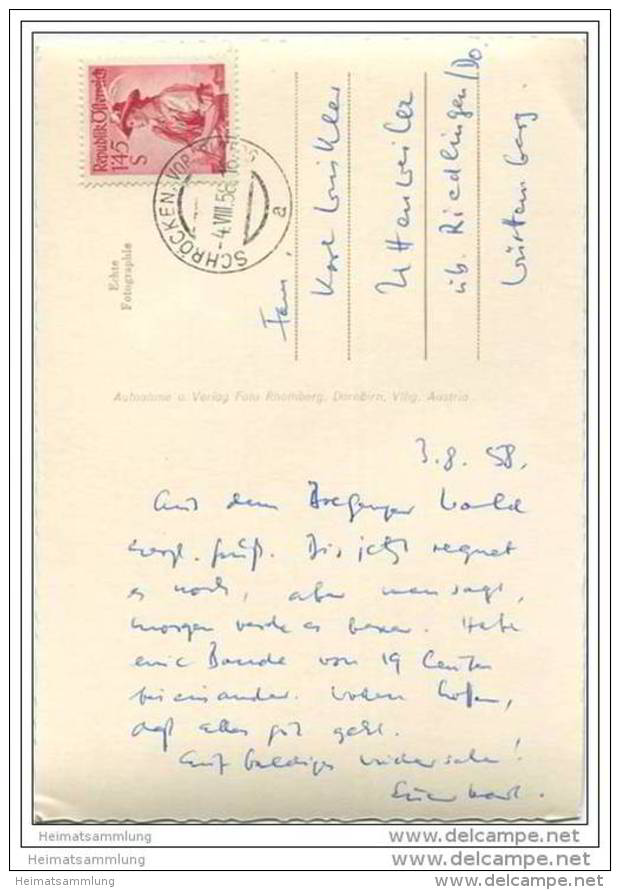 Republik Österreich
1'45
S
SCHRÖCKEN, VOR
-4.VIII.58
a
Echte
Fotographie
Fam.
Karl Winkler
Uttenweiler
üb. Riedlingen/Do.
Württemberg.
Aufnahme u. Verlag Foto Rhomberg, Dornbirn, Vlbg. Austria
3.8.58.
Aus dem Bregenzer Wald
herzl. Grüße. Bis jetzt regnet
es noch, aber man sagt,
morgen werde es besser. Habe
eine Bande von 19 Leuten
beieinander. Wollen hoffen,
daß alles gut geht.
Auf baldiges Wiedersehen!
Euer Karl.
Heimatsammlung
Heimatsammlung
Heimatsammlung
www.delcampe.net
www.delcampe.net
www.delcampe.net